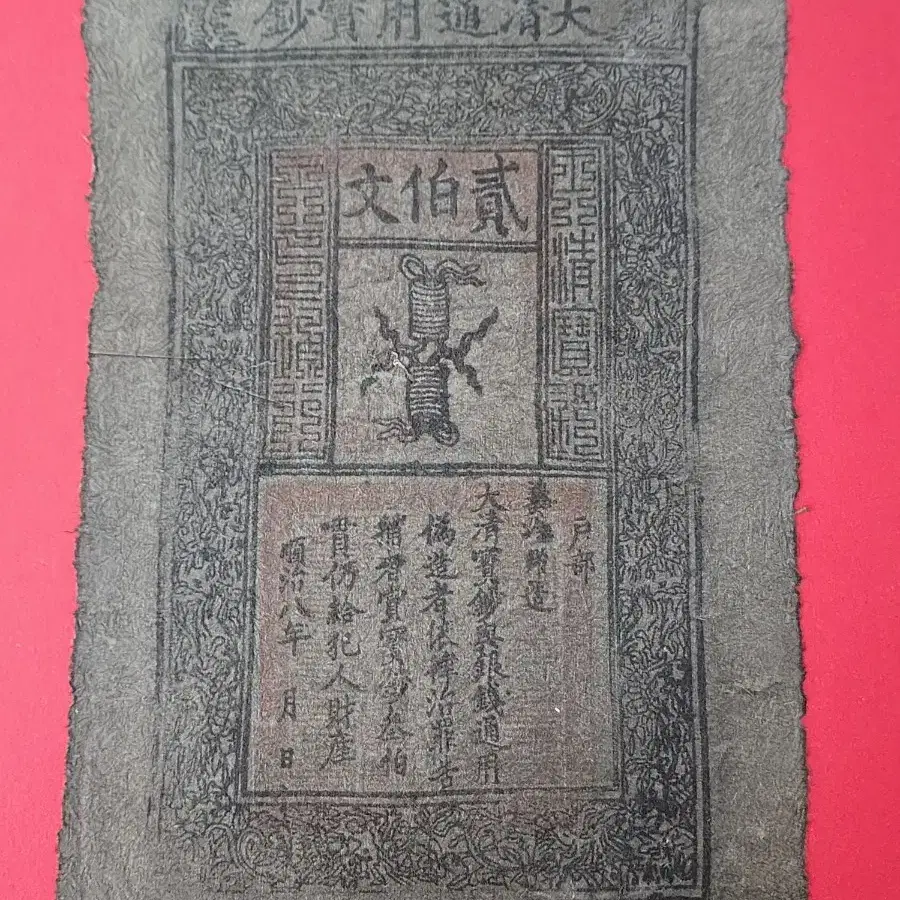 大清通用寳鈔
貳伯文
清寶鈔
戶部
奏准
大清寳鈔與銀錢通用
偽造者依律治罪告
捕者賞叁伯
貫仍給犯人財產
順治八年 月 日